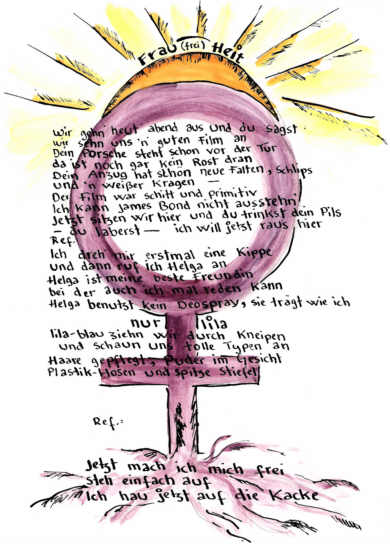 Frau (frei) Heit
Wir gehn heut abend aus und du sagst
wir sehn uns 'n' guten Film an
Dein Porsche steht schon vor der Tür
da ist noch gar kein Rost dran
Dein Anzug hat schon neue Falten, Schlips
und 'n weißer Kragen —
Der Film war schitt und primitiv
Ich kann James Bond nicht ausstehn
Jetzt sitzen wir hier und du trinkst dein Pils
– du laberst — ich will jetzt raus hier
Ref.
Ich dreh mir erstmal eine Kippe
und dann ruf ich Helga an
Helga ist meine beste Freundin
bei der auch ich mal reden kann
Helga benutzt kein Deospray, sie trägt wie ich
nur lila
lila-blau ziehn wir durch Kneipen
und schaun uns tolle Typen an
Haare gepflegt, Puder im Gesicht
Plastik-Hosen und spitze Stiefel
Ref.:
Jetzt mach ich mich frei
steh einfach auf
Ich hau jetzt auf die Kacke